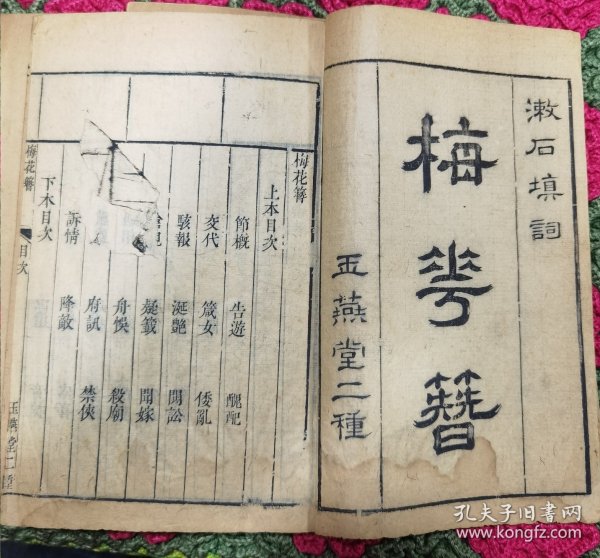 漱石填詞
梅花簪
玉燕堂二種
梅花簪
上本目次
節概 告遊 醜配
交代 箴女 倭亂
駭報 涎艷 鬩訟
疑籤 鬧嫁
舟悞 殺廟
府訊 禁俠
訴情 降敵
下本目次
梅花簪
目次
玉燕堂二種
孔夫子旧书网
kongfz.com